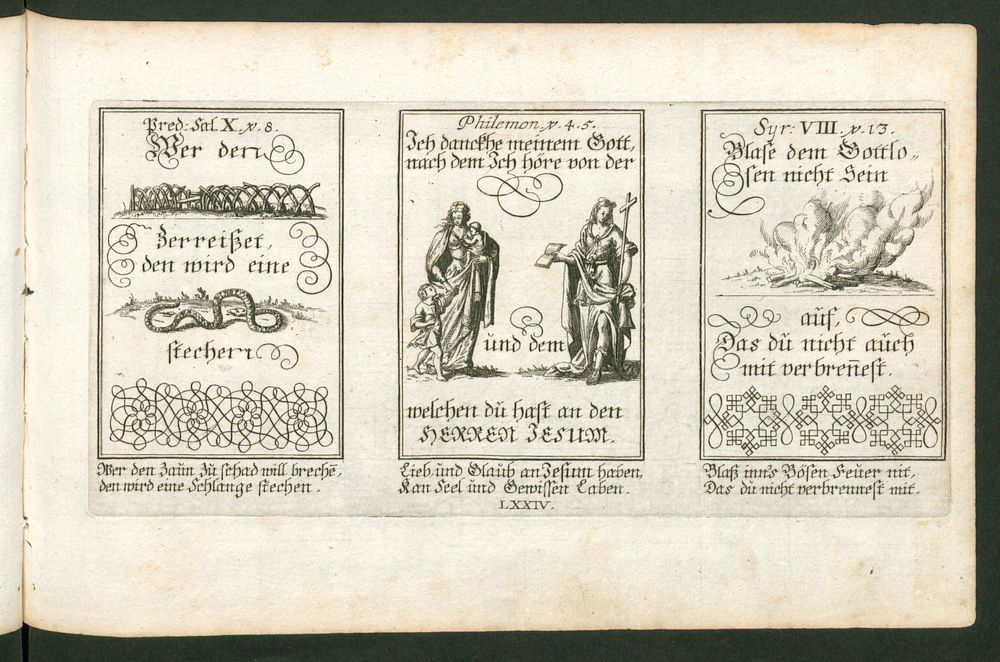 Pred: Sal. X. v. 8.
Wer den
Zerreißet,
den wird eine
stechen
Wer den Zaun zu schad will brechē,
den wird eine Schlange stechen.
Philemon. v. 4. 5.
Ich danckhe meinem Gott,
nach dem Ich höre von der
und dem
welchen dŭ hast an den
HERREN JESUM.
Lieb und Glaub an Jesum haben,
Kan Seel und Gewissen Laben.
LXXIV.
Syr: VIII. v. 13.
Blase dem Gottlo„
sen nicht Sein
auf,
Das dŭ nicht aŭch
mit verbren̄est.
Blaß inns Bösen Feuer nit,
Das du nicht verbrennest mit.